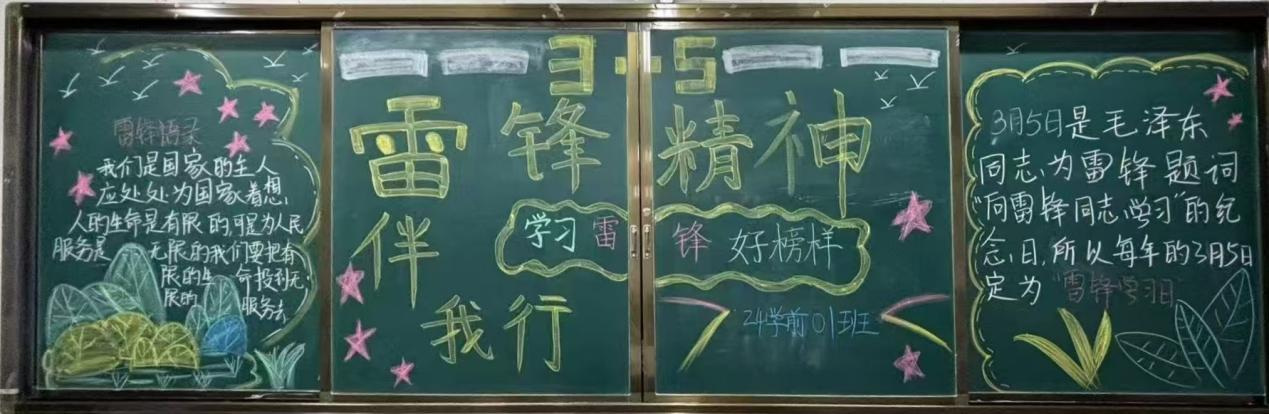 雷锋语录
我们是国家的主人
应处处为国家着想,
人的生命是有限的,可是为人民
服务是 无限的我们要把有
限的生 命投到无
限的 服务去
3·5
雷锋精神
伴
我行
学习雷锋好榜样
24学前01班
3月5日是毛泽东
同志为雷锋题词
“向雷锋同志学习”的纪
念日,所以每年的3月5日
定为“雷锋学习日”